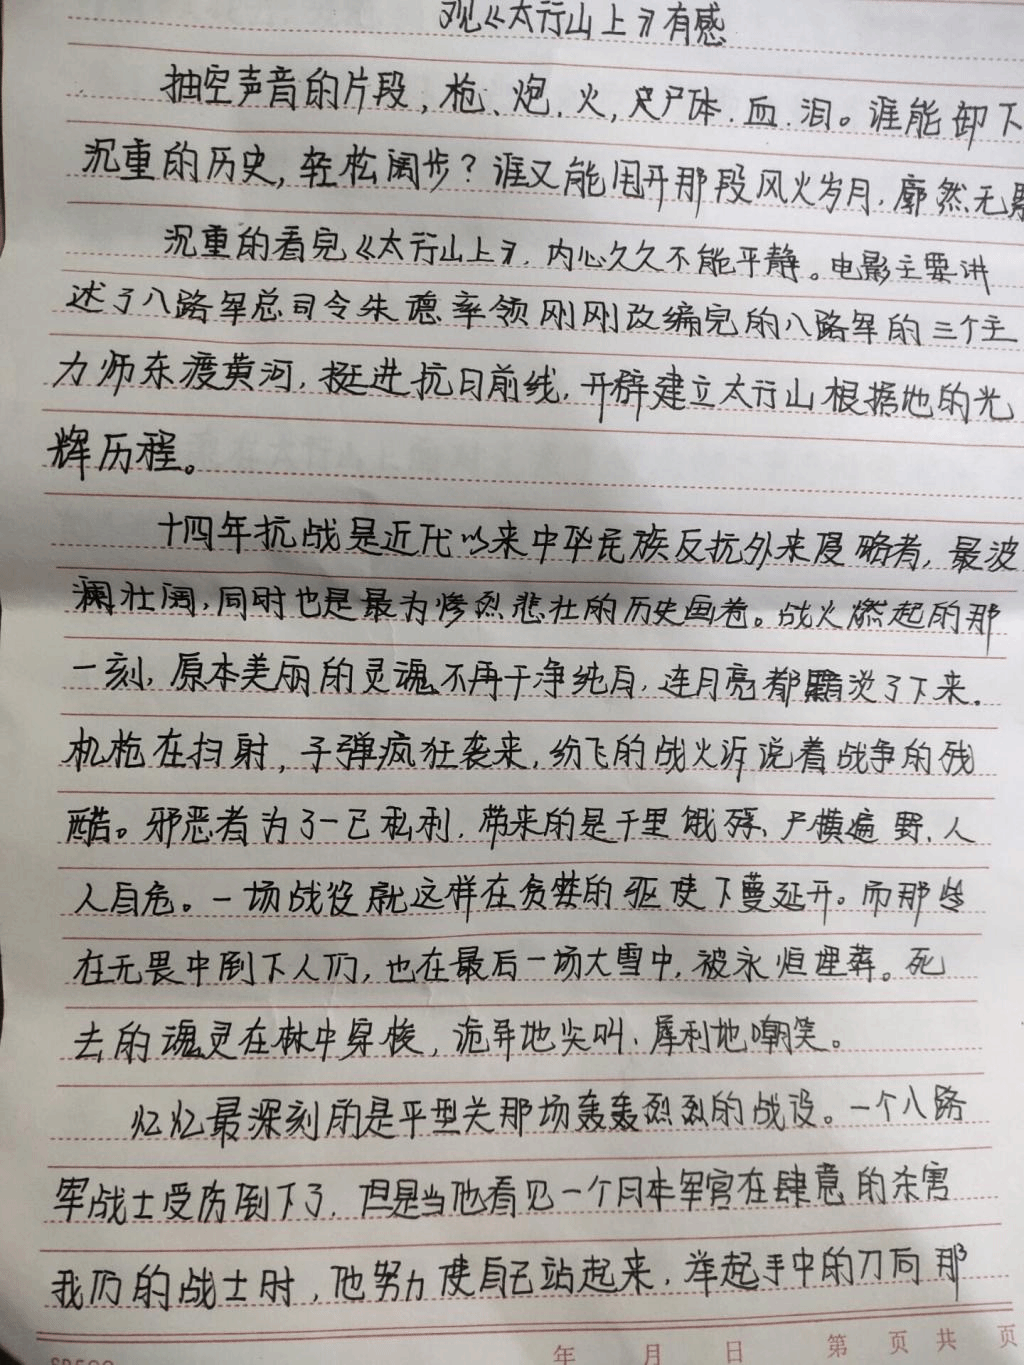 观《太行山上》有感
抽空声音的片段，枪、炮、火，尸体、血、泪。谁能卸下
沉重的历史，轻松阔步？谁又能甩开那段风火岁月，廓然无累
沉重的看完《太行山上》，内心久久不能平静。电影主要讲
述了八路军总司令朱德率领刚刚改编完的八路军的三个主
力师东渡黄河，挺进抗日前线，开辟建立太行山根据地的光
辉历程。
十四年抗战是近代以来中华民族反抗外来侵略者，最波
澜壮阔，同时也是最为惨烈悲壮的历史画卷。战火燃起的那
一刻，原本美丽的灵魂不再干净纯白，连月亮都黯淡了下来。
机枪在扫射，子弹疯狂袭来，纷飞的战火诉说着战争的残
酷。邪恶者为了一己私利，带来的是千里饿殍、尸横遍野、人
人自危。一场战役就这样在贪婪的驱使下蔓延开。而那些
在无畏中倒下人们，也在最后一场大雪中，被永恒埋葬。死
去的魂灵在林中穿梭，诡异地尖叫、犀利地嘲笑。
忆忆最深刻的是平型关那场轰轰烈烈的战役。一个八路
军战士受伤倒下了，但是当他看见一个日本军官在肆意的杀害
我们的战士时，他努力使自己站起来，举起手中的刀向那
年 月 日 第 页 共 页